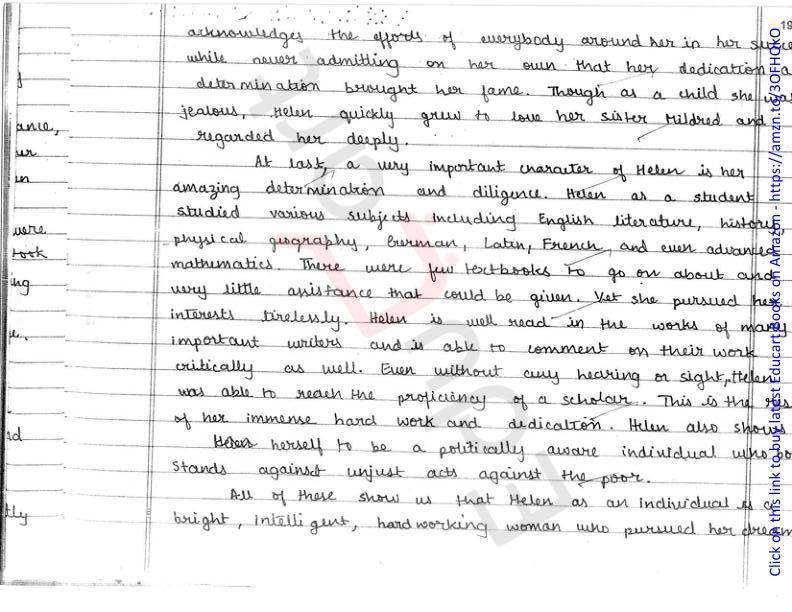 19
acknowledges the efforts of everybody around her in her
while never admitting on her own that her dedication
determination brought her fame. Though as a child she was
jealous, Helen quickly grew to love her sister Mildred and
regarded her deeply.
At last, a very important character of Helen is her
amazing determination and diligence. Helen as a student
studied various subjects including English literature, history,
physical geography, German, Latin, French, and even advanced
mathematics. There were few textbooks to go on about and
very little assistance that could be given. Yet she pursued her
interests tirelessly. Helen is well read in the works of many
important writers and is able to comment on their work
critically as well. Even without any hearing or sight, Helen
was able to reach the proficiency of a scholar. This is the res
of her immense hard work and dedication. Helen also shows
Helen herself to be a politically aware individual who
stands against unjust acts against the poor.
All of these show us that Helen as an individual is a
bright, intelligent, hardworking woman who pursued her dream
ance,
ur
en
were
took
ing
e.
d
tly
Click on this link to buy latest Educart Books on Amazon - https://amzn.to/3OFHOkO